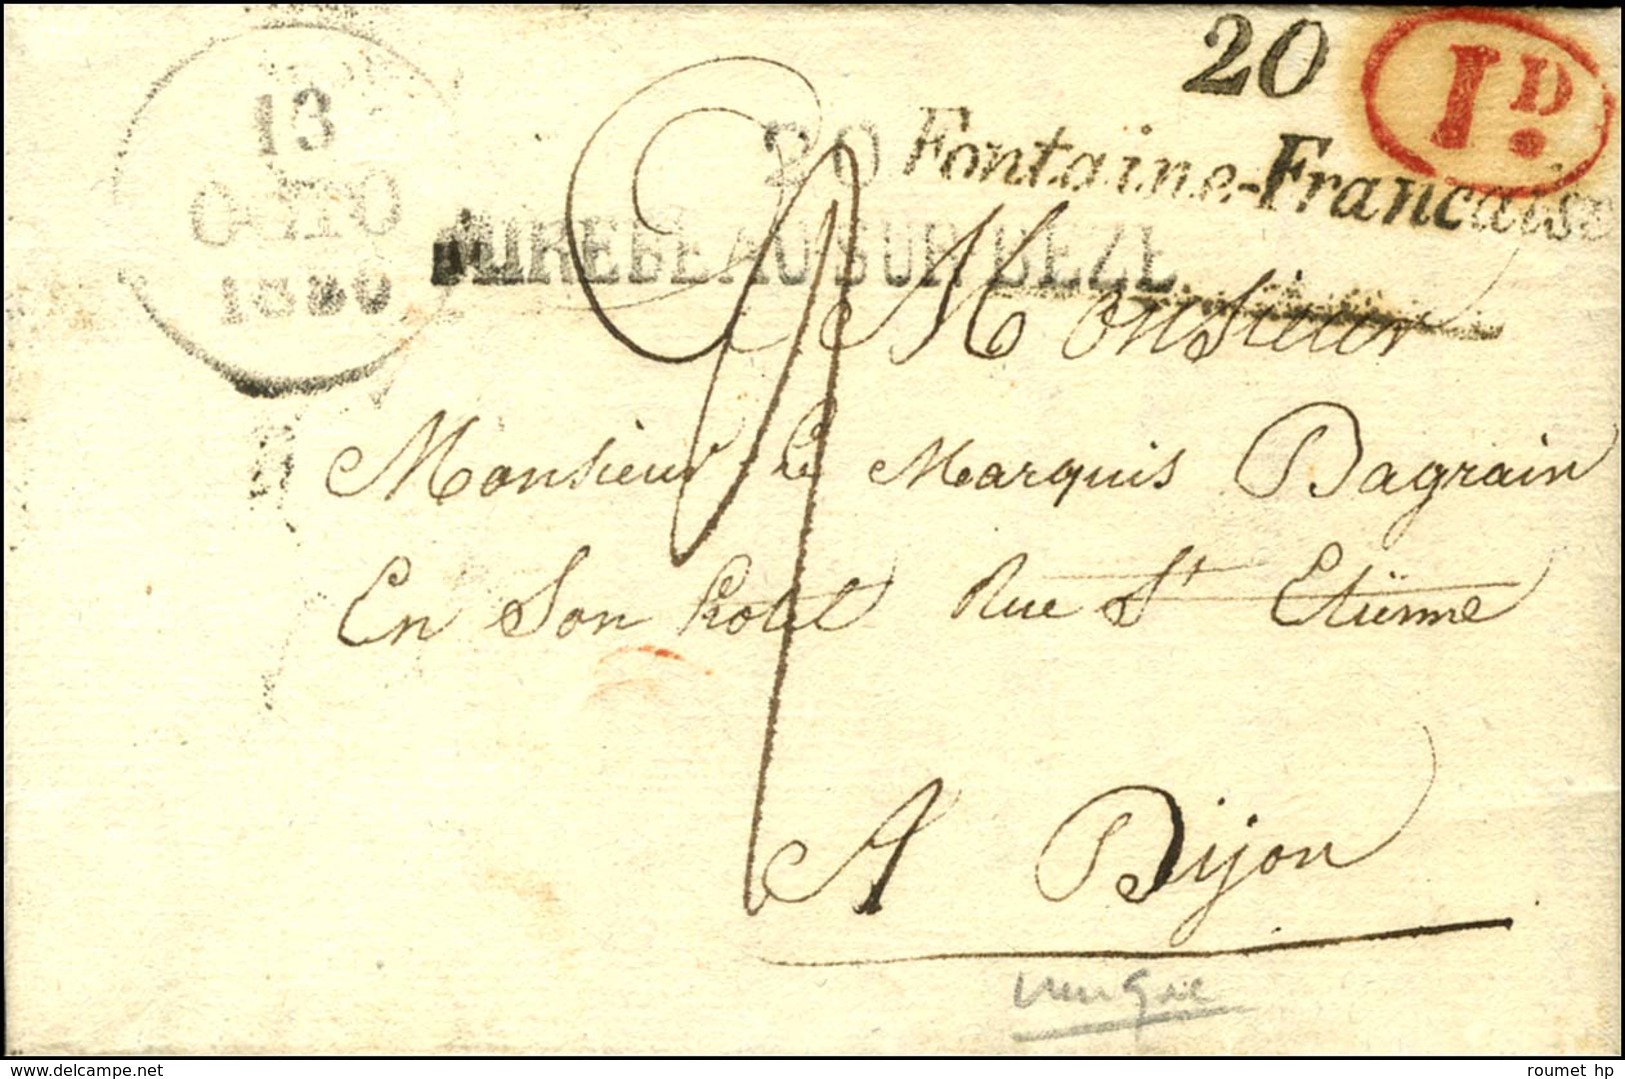 20
1D.
Fontaine-Française
13
OCTO
1830
20
MIREBEAU-SUR BEZE.
Monsieur
Monsieur le Marquis Dagrain
En Son hotel Rue St Etienne
A Dijon
unique
delcampe.net
roumet hp